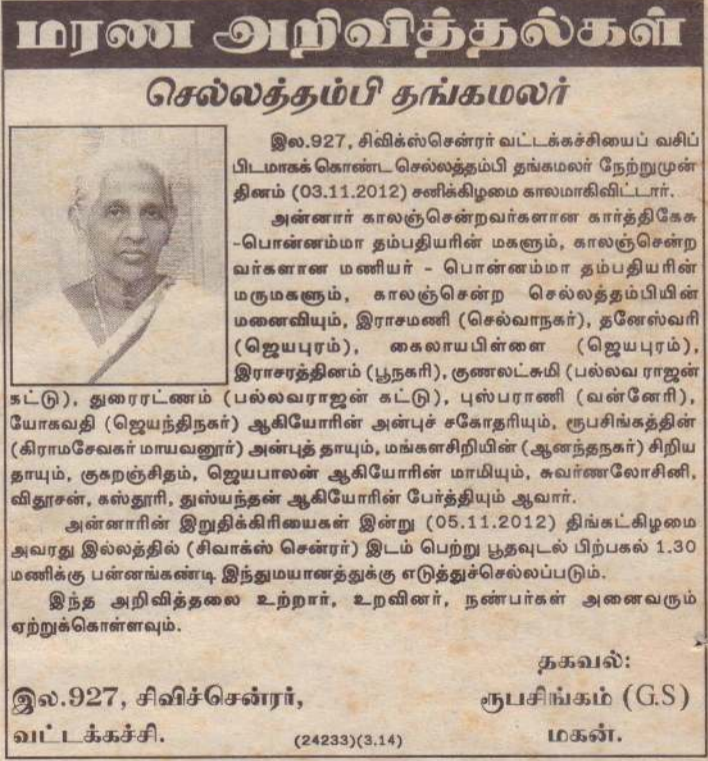 மரண அறிவித்தல்கள்
செல்லத்தம்பி தங்கமலர்
இல.927, சிவிக்ஸ்சென்ரர் வட்டக்கச்சியைப் வசிப்
பிடமாகக் கொண்ட செல்லத்தம்பி தங்கமலர் நேற்றுமுன்
தினம் (03.11.2012) சனிக்கிழமை காலமாகிவிட்டார்.
அன்னார் காலஞ்சென்றவர்களான கார்த்திகேசு
-பொன்னம்மா தம்பதியரின் மகளும், காலஞ்சென்ற
வர்களான மணியர் - பொன்னம்மா தம்பதியரின்
மருமகளும், காலஞ்சென்ற செல்லத்தம்பியின்
மனைவியும், இராசமணி (செல்வாநகர்), தனேஸ்வரி
(ஜெயபுரம்), கைலாயபிள்ளை (ஜெயபுரம்),
இராசரத்தினம் (பூநகரி), குணலட்சுமி (பல்லவ ராஜன்
கட்டு), துரைரட்ணம் (பல்லவராஜன் கட்டு), புஸ்பராணி (வன்னேரி),
யோகவதி (ஜெயந்திநகர்) ஆகியோரின் அன்புச் சகோதரியும், ரூபசிங்கத்தின்
(கிராமசேவகர் மாயவனூர்) அன்புத் தாயும், மங்களசிறியின் (ஆனந்தநகர்) சிறிய
தாயும், குகறஞ்சிதம், ஜெயபாலன் ஆகியோரின் மாமியும், சுவர்ணலோசினி,
விதூசன், கஸ்தூரி, துஸ்யந்தன் ஆகியோரின் பேர்த்தியும் ஆவார்.
அன்னாரின் இறுதிக்கிரியைகள் இன்று (05.11.2012) திங்கட்கிழமை
அவரது இல்லத்தில் (சிவாக்ஸ் சென்ரர்) இடம் பெற்று பூதவுடல் பிற்பகல் 1.30
மணிக்கு பன்னங்கண்டி இந்துமயானத்துக்கு எடுத்துச்செல்லப்படும்.
இந்த அறிவித்தலை உற்றார், உறவினர், நண்பர்கள் அனைவரும்
ஏற்றுக்கொள்ளவும்.
தகவல்:
இல.927, சிவிச்சென்ரர், ரூபசிங்கம் (G.S)
வட்டக்கச்சி. (24233)(3.14) மகன்.